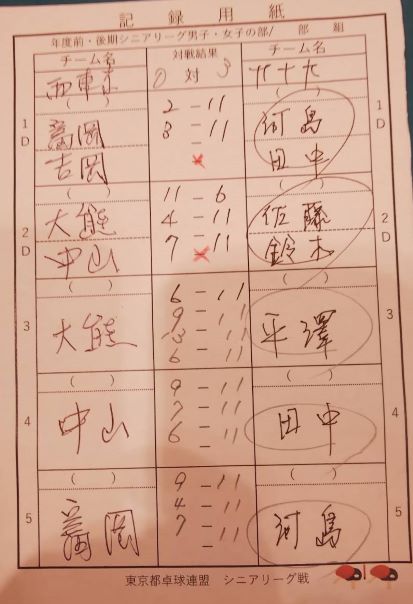 記録用紙
年度前・後期シニアリーグ男子・女子の部/ 部 組
チーム名 対戦結果 チーム名
西東京 0 対 3 九十九
( ) ( )
1D 2 - 11 1D
萬岡 3 - 11 河島
吉岡 × 田中
( ) ( )
2D 11 - 6 2D
大熊 4 - 11 佐藤
中山 7 - 11 鈴木
( ) ( )
6 - 11
9 - 11
3 大熊 - 11 平澤 3
6 - 11
( ) ( )
9 - 11
4 中山 7 - 11 田中 4
6 - 11
( ) ( )
9 - 11
4 - 11
5 萬岡 7 - 11 河島 5
東京都卓球連盟 シニアリーグ戦